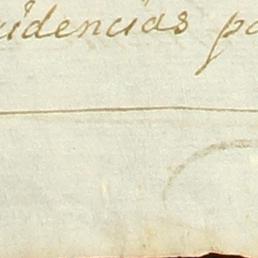 videncias pa